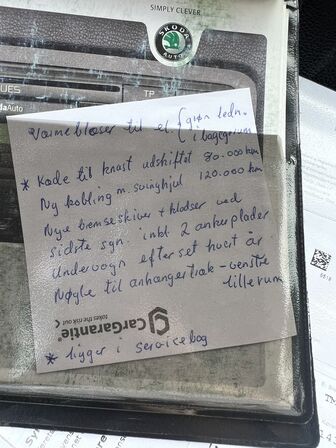 SIMPLY CLEVER
SKODA
AUTO
UES
TP
daAuto
Varmeblæser til el { grøn ledn.
i bagagerum
* Kæde til knast udskiftet 80.000 km
Ny kobling m. svinghjul 120.000 km
Nye bremseskiver + klodser ved
sidste syn. inkl 2 ankerplader
Undervogn efterset hvert år
Nøgle til anhængertræk - venstre
lillerum
CarGarantie
takes the risk out
* ligger i servicebog